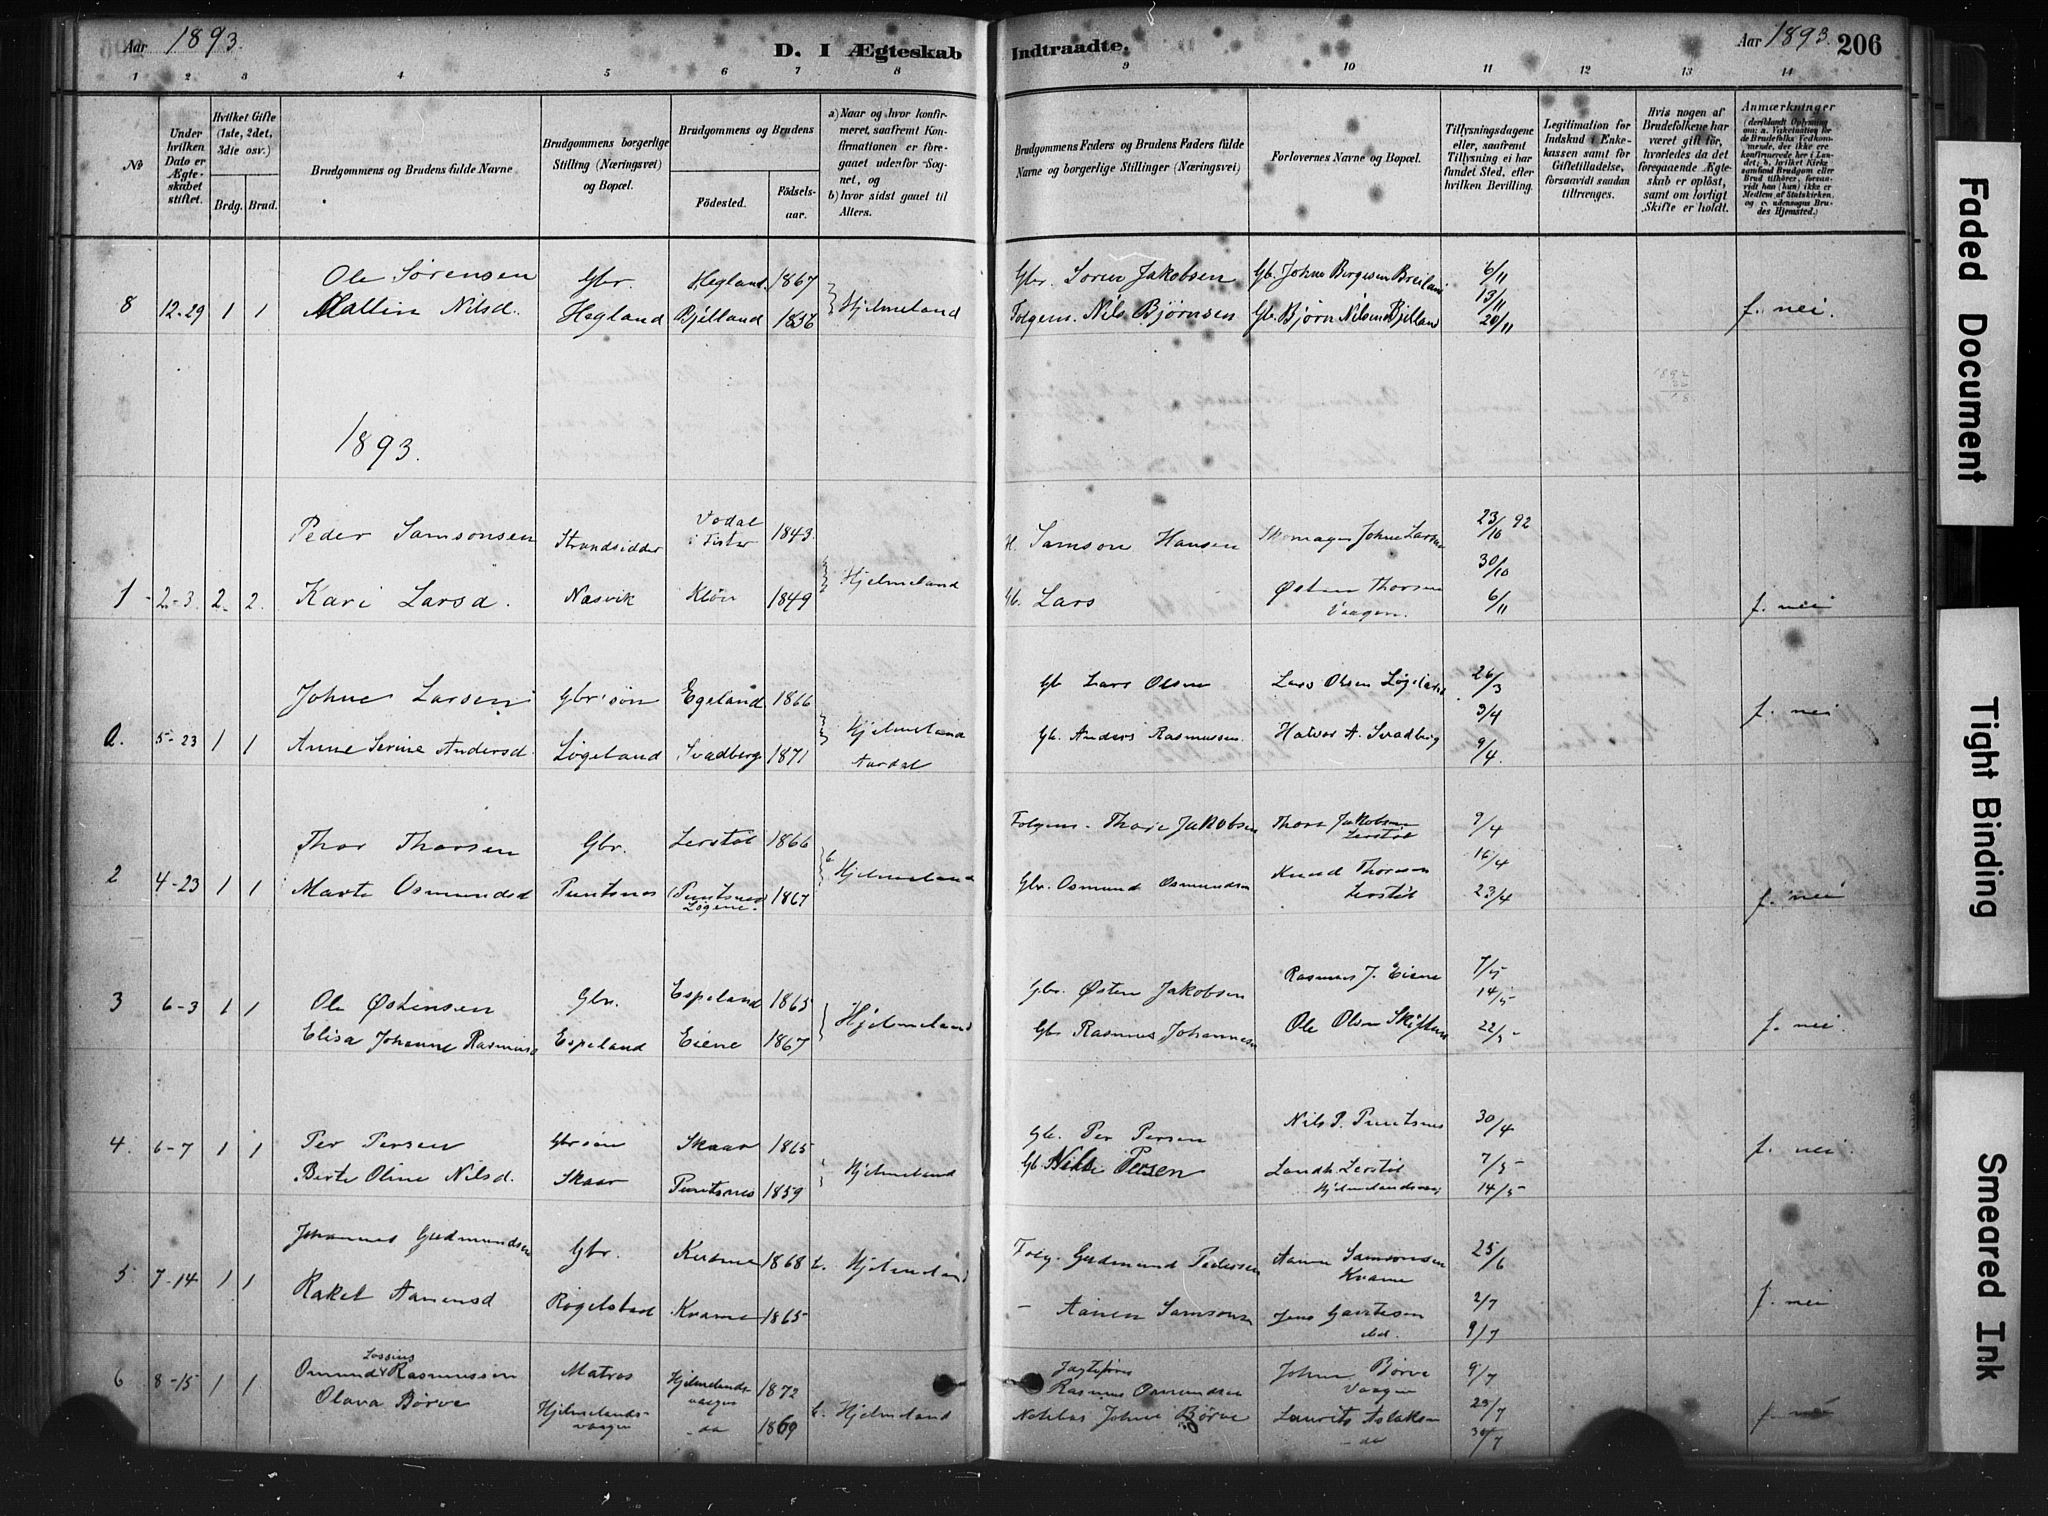 Aar 1893.
D. I Ægteskab Indtraadte.
Aar 1893. 206
1 2 3 4 5 6 7 8 9 10 11 12 13 14
No
Under hvilken Dato er Ægteskabet stiftet.
Hvilket Gifte (1ste, 2det, 3die osv.)
Brdg. Brud.
Brudgommens og Brudens fulde Navne
Brudgommens borgerlige Stilling (Næringsvei) og Bopæl.
Brudgommens og Brudens
Fødested.
Fødselsaar.
a) Naar og hvor konfirmeret, saafremt Konfirmationen er foregaaet udenfor Sognet, og
b) hvor sidst gaaet til Alters.
Brudgommens Faders og Brudens Faders fulde Navne og borgerlige Stillinger (Næringsvei)
Forlovernes Navne og Bopæl.
Tillysningsdagene eller, saafremt Tillysning ei har fundet Sted, efter hvilken Bevilling.
Legitimation for Indskud i Enkekassen samt for Giftetilladelse, forsaavidt saadan tiltrænges.
Hvis nogen af Brudefolkene har været gift før, hvorledes da det foregaaende Ægteskab er opløst, samt om lovligt Skifte er holdt.
Anmærkninger
(deriblandt Oplysning om: a. Vakcination for de Brudefolks Vedkommende, der ikke ere konfirmerede her i Landet; b. hvilket Kirkesamfund Brudgom eller Brud tilhører, forsaavidt han (hun) ikke er Medlem af Statskirken, og c. udensogns Brudes Hjemsted.)
Ole Sørensen Gbr. Hegland 1867 Gbr. Søren Jakobsen Gb. Johne Bergesen Breiland 6/11
8 12-29 1 1 Mallin Nilsd. Hegland Bjelland 1836 Hjelmeland Folgem. Nils Bjørnsen Gb. Bjørn Nilsen Bjelland 13/11 20/11 f. nei.
1893.
Peder Samsonsen Strandsidder 1843 Samson Hansen Skomager Johne Larsen 23/10 92
30/10
1 2-3. 2. 2. Kari Larsd. Næsvik Kløn 1849 Hjelmeland Gb. Lars Østen Thorsen Vaagen. 6/11 f. nei
Johne Larsen Gbr.søn Egeland 1866 Gb Lars Olsen Lars Olsen Løgeland 26/3
3/4
5-23 1 1 Anne Serine Andersd. Løgeland Svadberg 1871 Hjelmeland Aardal Gb. Anders Rasmussen. Halvor A. Svadberg 9/4. f. nei
Thor Thorsen Gbr. Lerstøl 1866 Folgem. Thore Jakobsen Thore Jakobsen Lerstøl 9/4
16/4
2 4-23 1 1 Marte Osmundsd Puntsnes Puntsnes 1867 b. Hjelmeland Gbr. Osmund Osmundsen Knud Thorsen Lerstøl 23/4 f. nei
3 6-3 1 1 Ole Østensen Gbr. Espeland 1865 Gbr. Østen Jakobsen Rasmus J. Eiene 7/5
14/5
Elisa Johanne Rasmusd Espeland Eiene 1867 Hjelmeland Gbr Rasmus Johannesen Ole Olsen Skiftun 22/5 f. nei
4. 6-7 1 1 Per Persen Gbrsøn Skaar 1865 Gb. Per Persen Nils P. Puntsnes 30/4
Berte Oline Nilsd. Skaar Puntsnes 1859 Hjelmeland Gb Nils Persen Landh. Lerstøl Hjelmelandsvaag 7/5 14/5 f. nei.
Johannes Gudmundsen Gbr. Kvame 1868 b. Hjelmeland Folg. Gudmund Pedersen Aanen Samsonsen Kvame 25/6
5 7-14 1 1 Rakel Aanensd Røgelstad Kvame 1865 - Aanen Samsonsen Jens Gautesen 2/7 9/7 f. nei
6 8-15 1 1 Lossius Omund Rasmussen Matros Hjelmelandsvaagen 1872 Rasmus Omundsen Johne Børve Vaagen 9/7
Olava Børve Hjelmelandsvaagen do 1869 b. Hjelmeland Johne Børve Laurits Aslaksen do 23/7 30/7 f. nei
Faded Document
Tight Binding
Smeared Ink